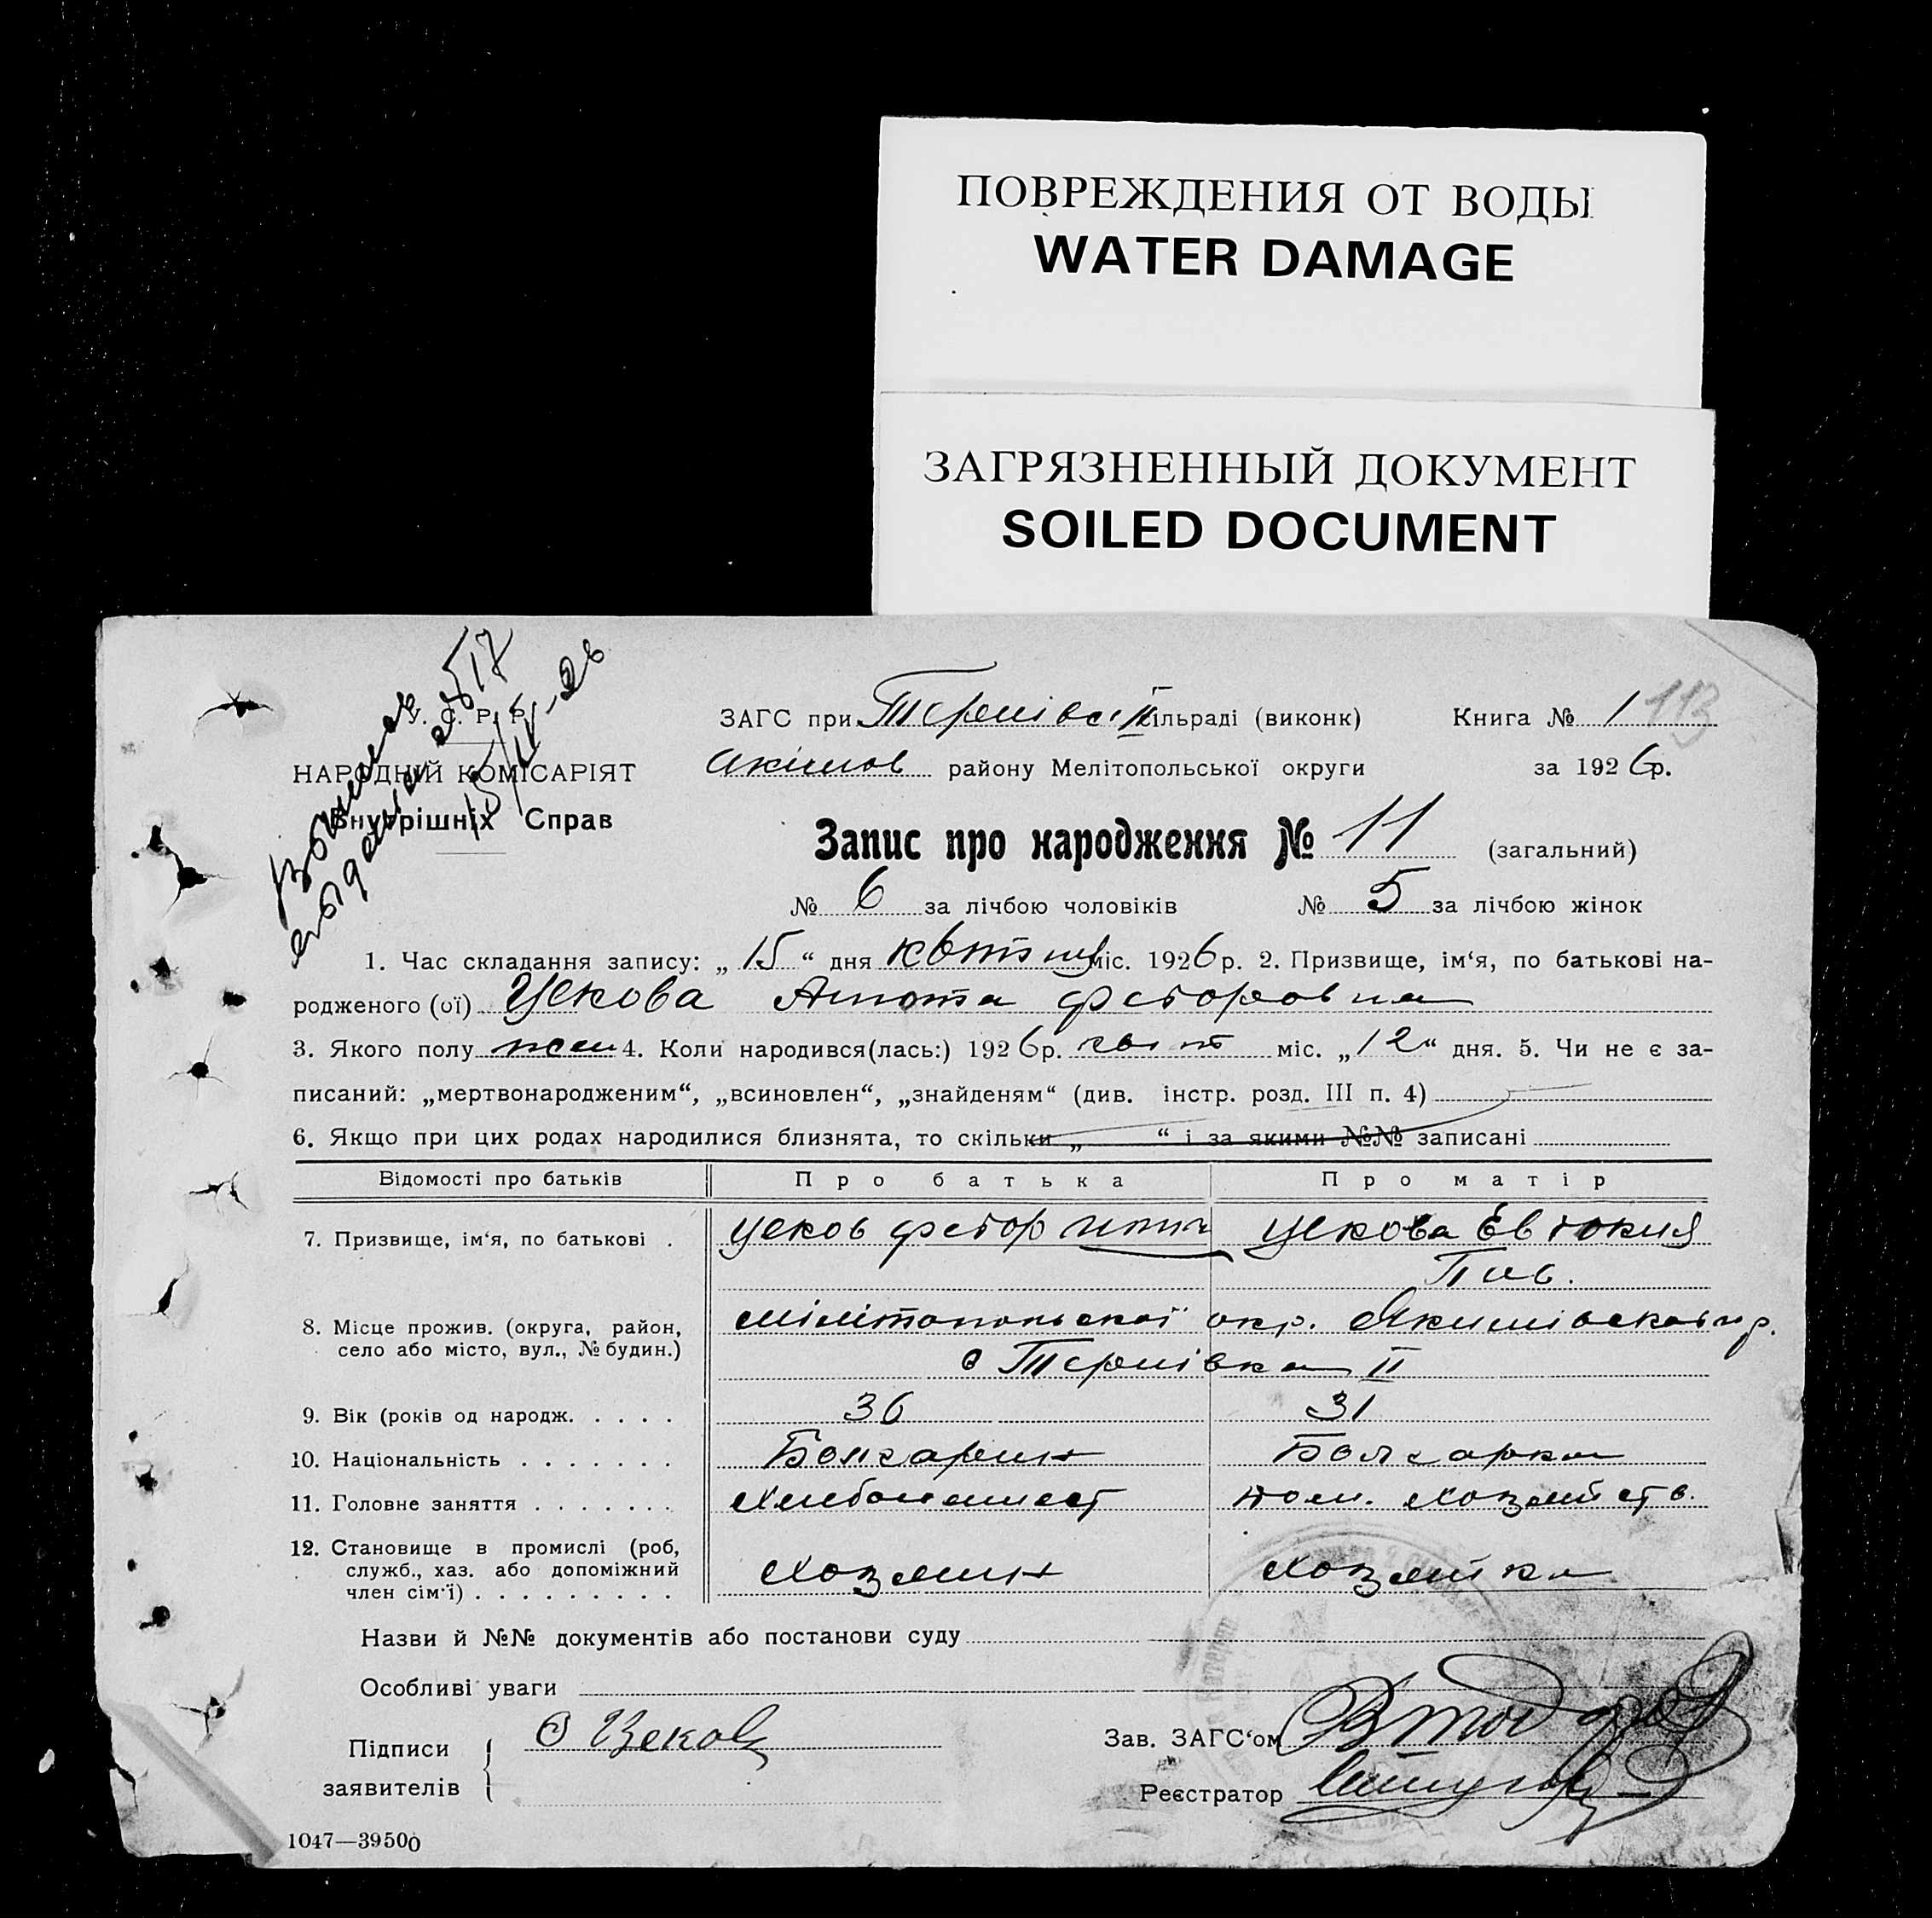 ПОВРЕЖДЕНИЯ ОТ ВОДЫ
WATER DAMAGE
ЗАГРЯЗНЕННЫЙ ДОКУМЕНТ
SOILED DOCUMENT
У. С. Р. Р.
НАРОДНІЙ КОМІСАРІЯТ
Внутрішніх Справ
ЗАГС при Тернівс II сільраді (виконк) Книга № 1 113
Акимов району Мелітопольської округи за 1926 р.
Запис про народження № 11 (загальний)
№ 6 за лічбою чоловіків № 5 за лічбою жінок
1. Час складання запису: „ 15 “ дня міс. 1926 р. 2. Призвище, ім‘я, по батькові на-
родженого (ої) Цекова Федоровна
3. Якого полу жен 4. Коли народився(лась:) 1926 р. квіт міс. „12“ дня. 5. Чи не є за-
писаний: „мертвонародженим“, „всиновлен“, „знайденям“ (див. інстр. розд. III п. 4)
6. Якщо при цих родах народилися близнята, то скільки „ “ і за якими №№ записані
Відомості про батьків Про батька Про матір
7. Призвище, ім‘я, по батькові . Цеков Федор Цекова Евдокия
Пав.
8. Місце прожив. (округа, район, Мілітопольскої окр. Якимівсков р.
село або місто, вул., № будин.) с Тернівка II
9. Вік (років од народж. . . . . 36 31
10. Національність . . . . . . . Болгарин Болгарка
11. Головне заняття . . . . . . . Хлебопашест дом. хозяйств.
12. Становище в промислі (роб,
служб., хаз. або допоміжний хозяин хозяйка
член сім‘ї) . . . . . . . . .
Назви й №№ документів або постанови суду
Особливі уваги
Підписи Цеков Зав. ЗАГС‘ом
заявителів Реєстратор
1047—39500